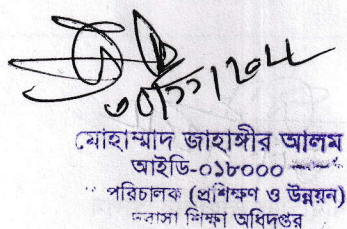 মোহাম্মাদ জাহাঙ্গীর আলম
আইডি-০১৮০০০
পরিচালক (প্রশিক্ষণ ও উন্নয়ন)
শিক্ষা অধিদপ্তর